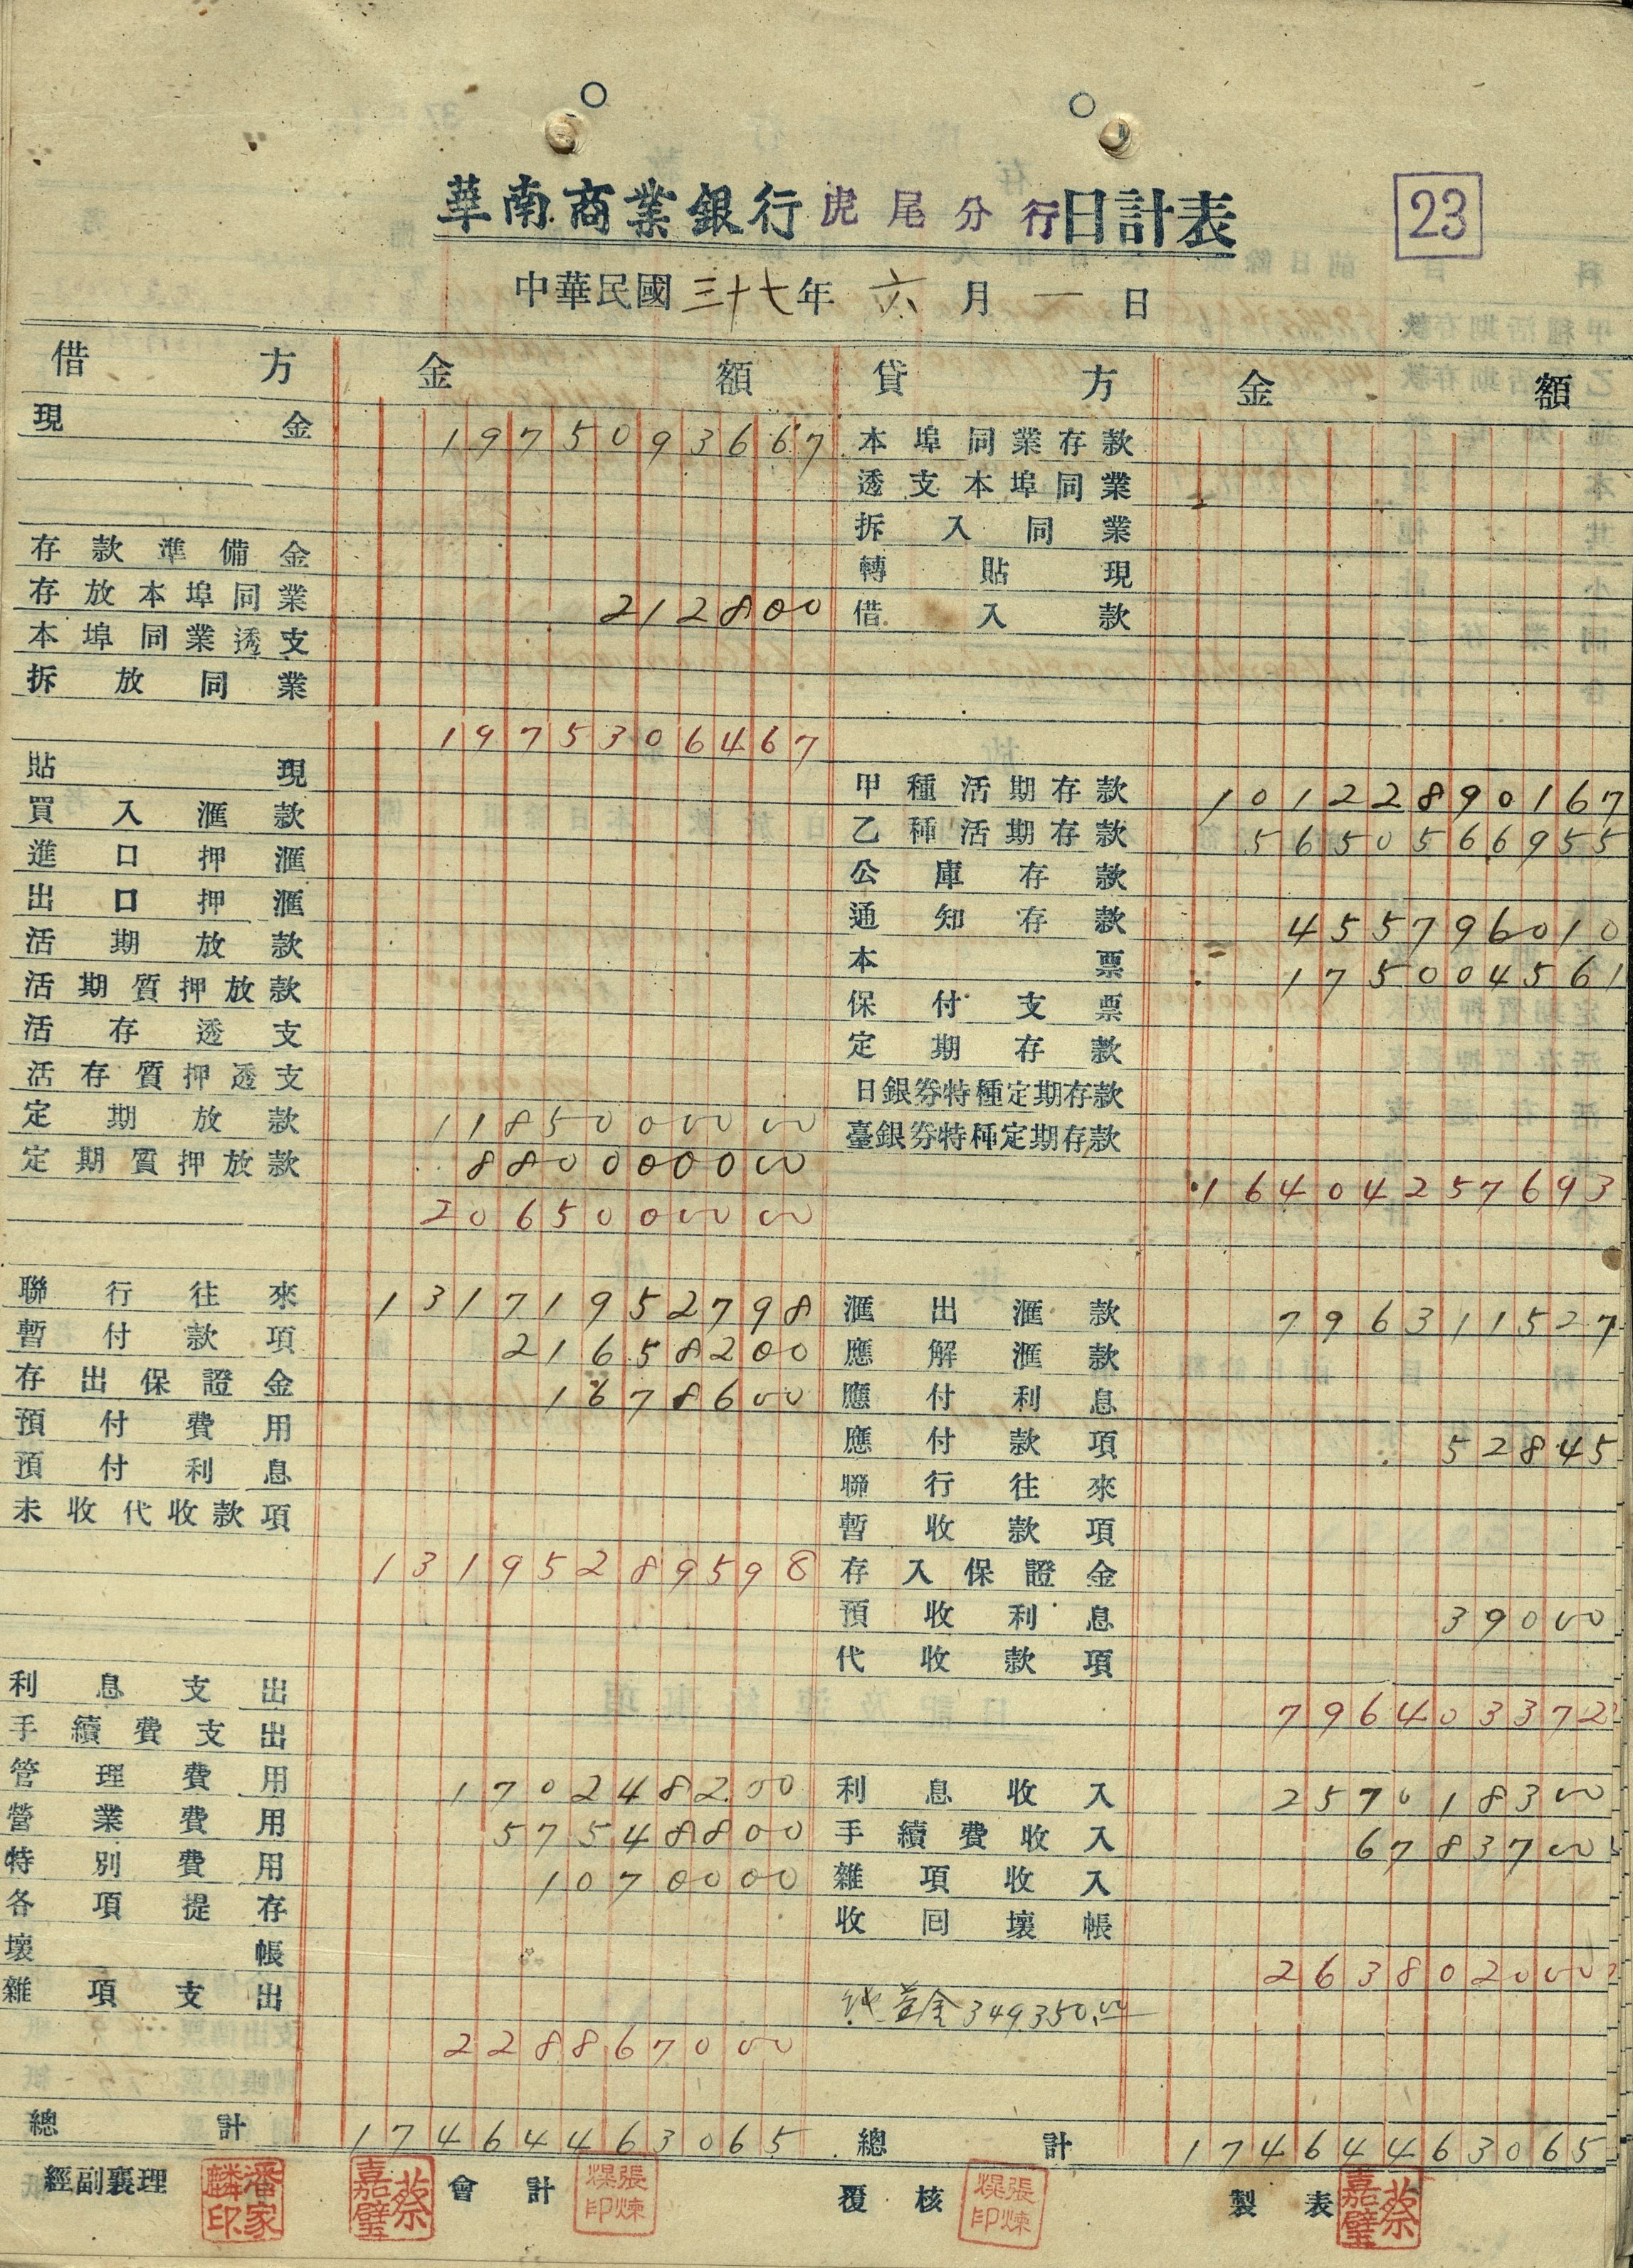 華南商業銀行虎尾分行日計表
23
中華民國三十七年六月一日
借方 金額
現金 1975093667
存款準備金
存放本埠同業 212800
本埠同業透支
拆放同業
1975306467
貼現
買入滙款
進口押滙
出口押滙
活期放款
活期質押放款
活存透支
活存質押透支
定期放款 1185000000
定期質押放款 880000000
2065000000
聯行往來 13171952798
暫付款項 21658200
存出保證金 1678600
預付費用
預付利息
未收代收款項
13195289598
利息支出
手續費支出
管理費用 170248200
營業費用 57548800
特別費用 1070000
各項提存
壞帳
雜項支出
228867000
總計 17464463065
貸方 金額
本埠同業存款
透支本埠同業
拆入同業
轉貼現
借入款
甲種活期存款 10122890167
乙種活期存款 5650566955
公庫存款
通知存款 455796010
本票 175004561
保付支票
定期存款
日銀券特種定期存款
臺銀券特種定期存款
16404257693
滙出滙款 796311527
應解滙款
應付利息
應付款項 52845
聯行往來
暫收款項
存入保證金
預收利息 39000
代收款項
796403372
利息收入 257018300
手續費收入 6783700
雜項收入
收回壞帳
263802000
金349,350.00
總計 17464463065
經副襄理 潘家麟印 蔡嘉璧 會計 張煉爆印 覆核 張煉爆印 製表 蔡嘉璧